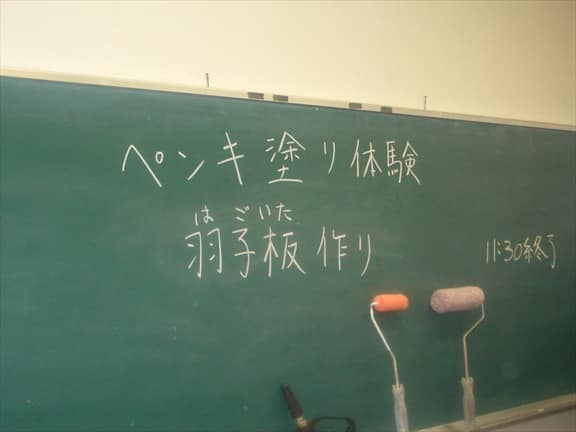 ペンキ塗り体験
はごいた
羽子板作り
11:30終了